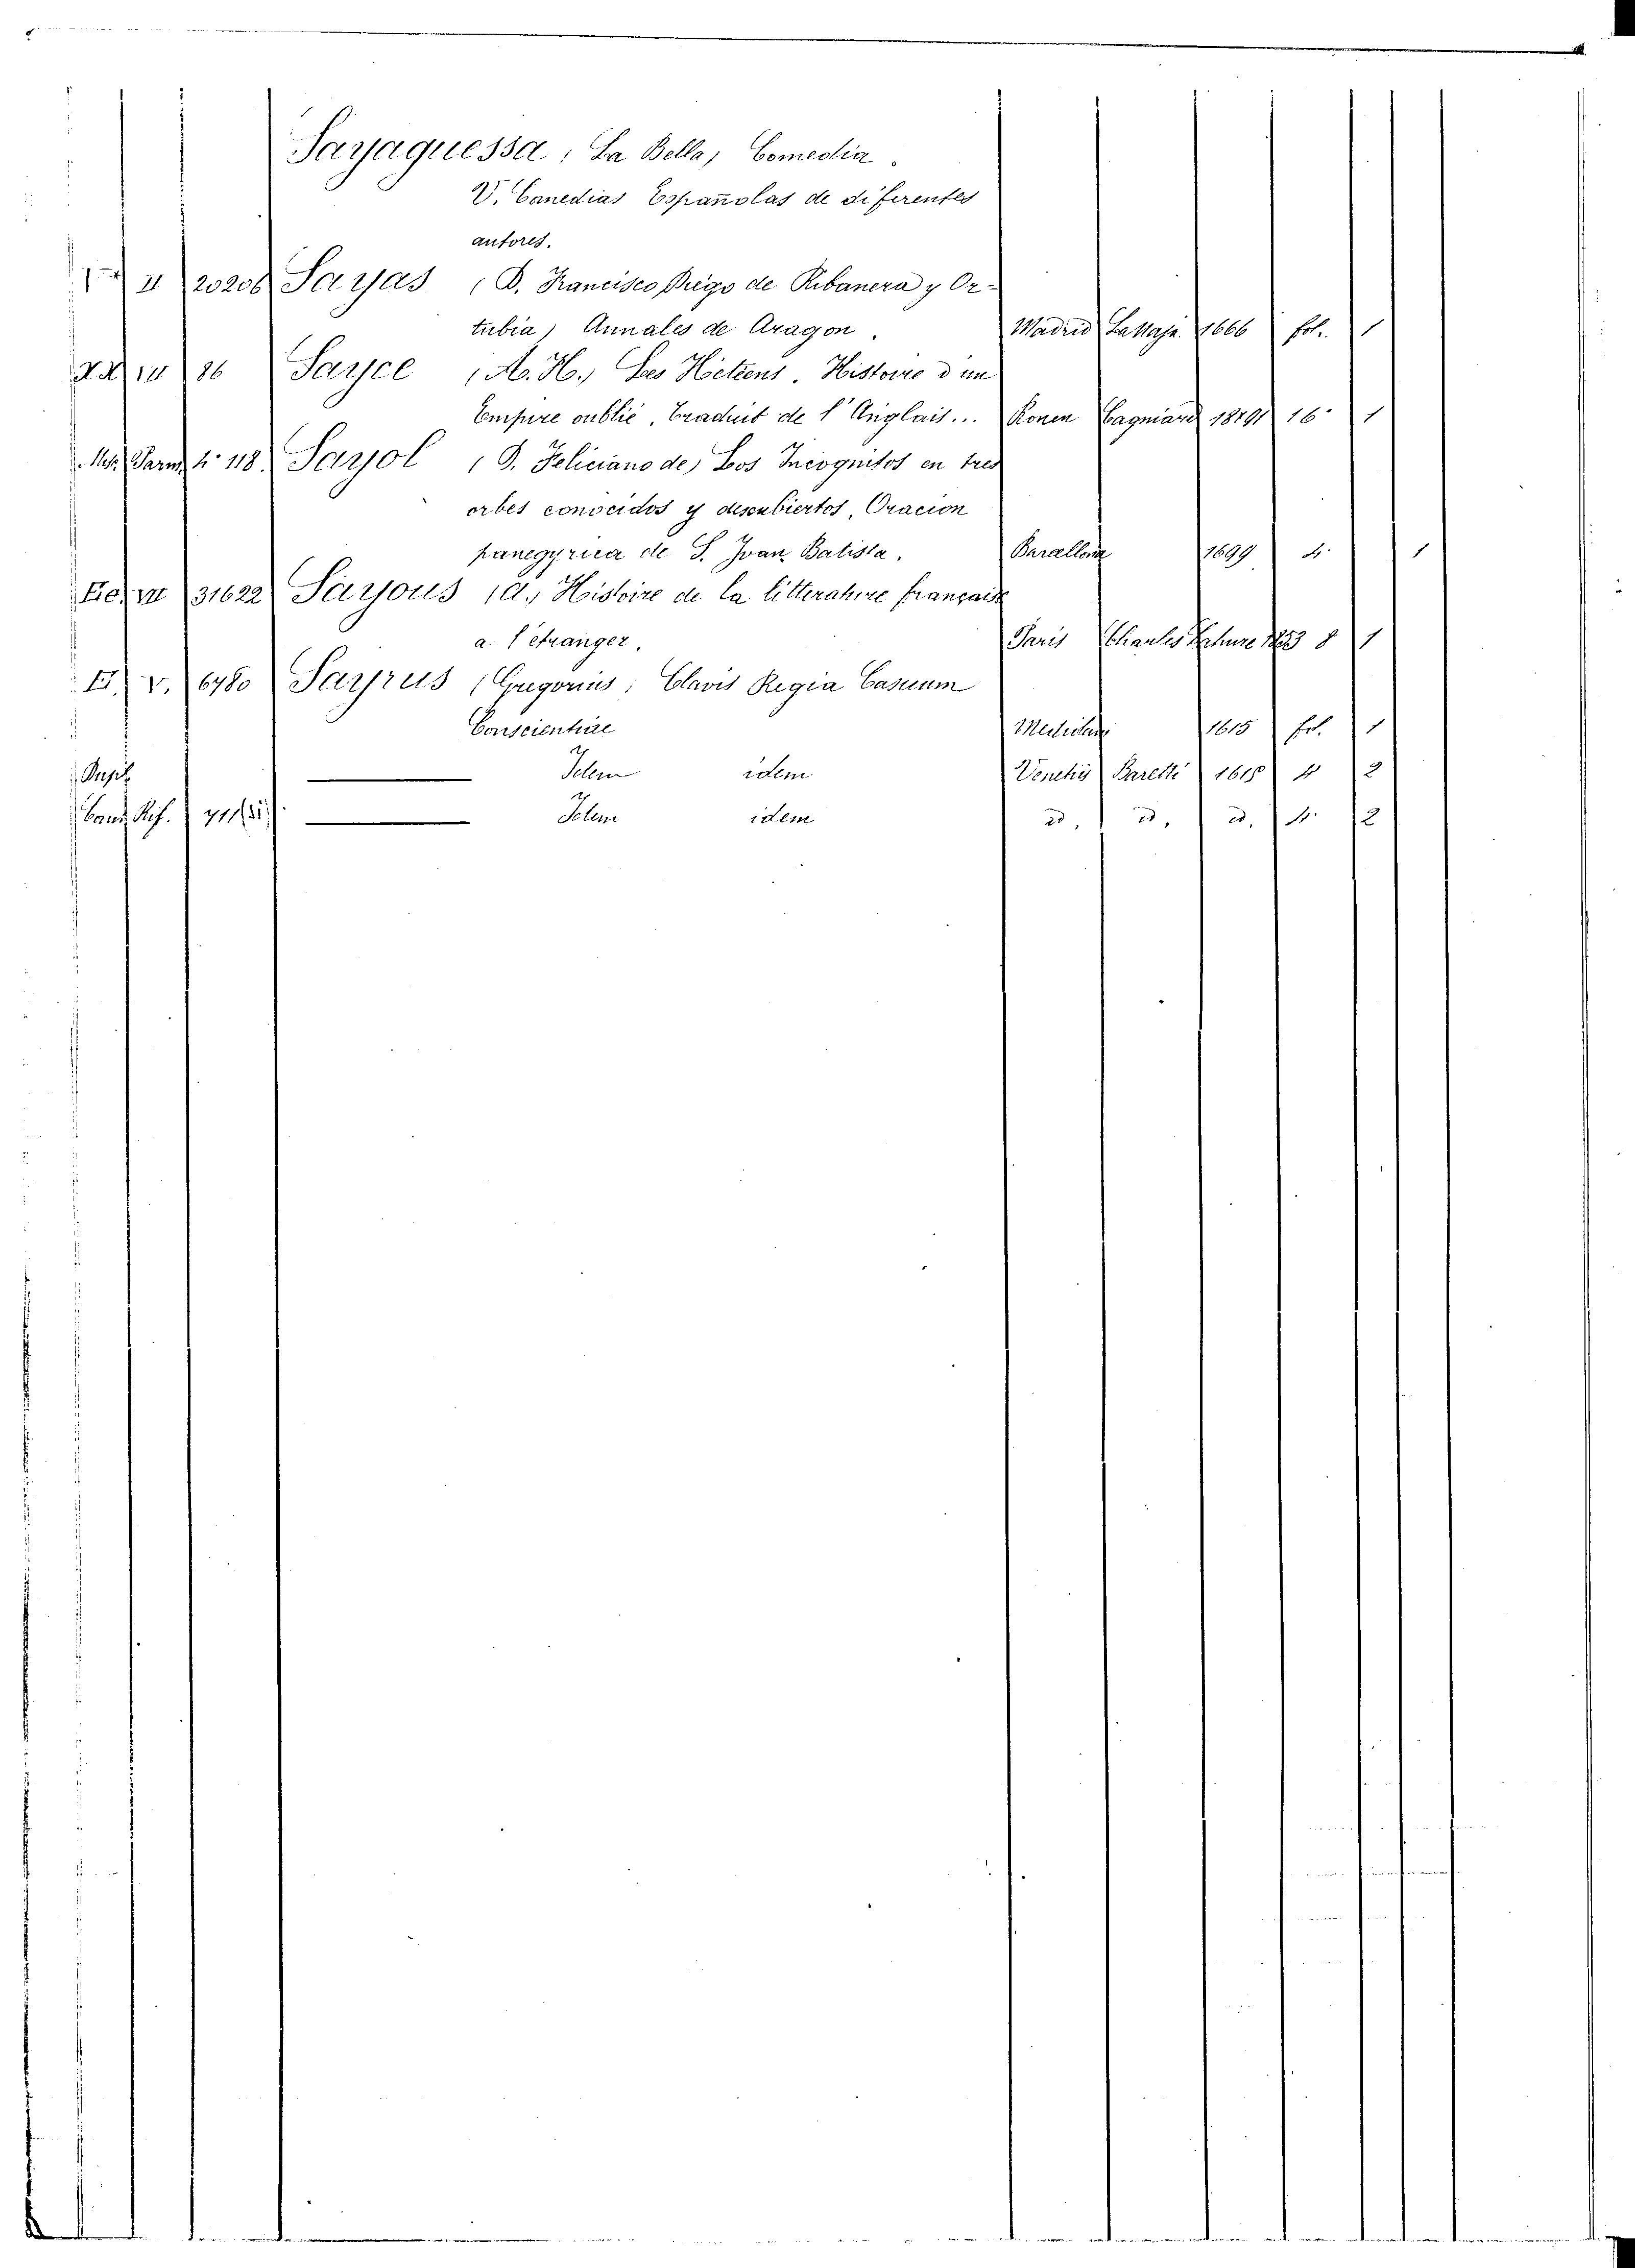 Sayaquessa, La Bella, Comedia.
V. Comedias Españolas de diferentes
autores.
II 20206 Sayas (D. Francisco Diego de Ribanera y Or-
tubia) Annales de Aragon. Madrid 1666 fol. 1
86 Sayce (A. H.) Les Héteens. Histoire d'un
Empire oublié, traduit de l'Anglais... Rouen Cagniard 1891 16° 1
Parm. 4° 118. Sayol (D. Feliciano de) Los Incognitos en tres
orbes conocidos y descubiertos, Oracion
panegyrica de S. Ivan Batista. Barcellona 1699 4° 1
VII 31622 Sayous (A.) Histoire de la litterature française
a l'etranger. Paris Charles Lahure 1853 8 1
V. 6780 Sayrus (Gregorius) Clavis Regia Casuum
Conscientiae 1615 fol. 1
Dupl. Idem idem Venetiis Baretti 1618 4 2
Rif. 711 Idem idem id. id. id. 4° 2